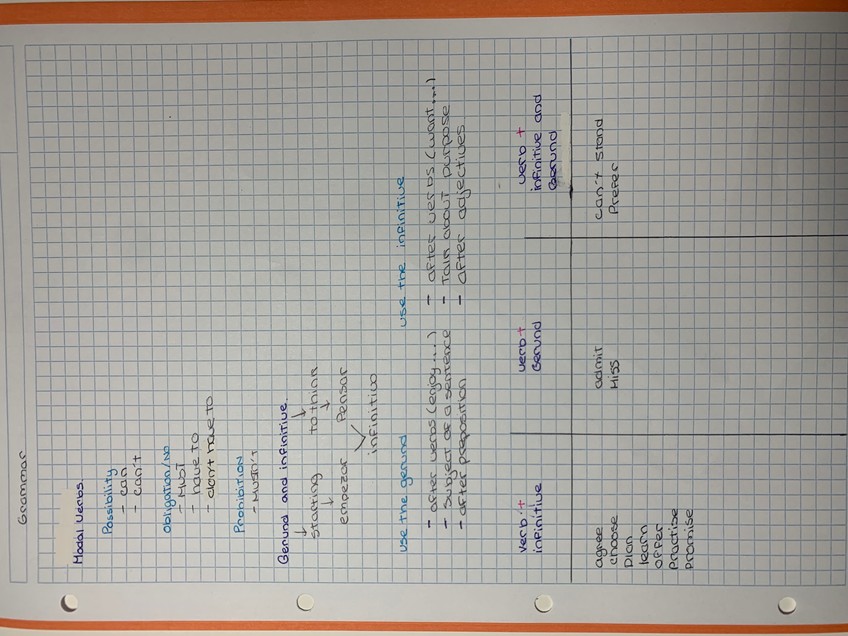 Grammar
Modal Verbs.
Possibility
- can
- can't
Obligation/NO
- MUST
- have to
- don't have to
Prohibition
- MUSTN'T
Gerund and infinitive.
↓ starting ↓ to think
↓ ↓
empezar Pensar
infinitivo
use the gerund
- after verbs (enjoy...)
- subject of a sentence
- after preposition
use the infinitive
- after verbs (want...)
- Talk about purpose
- after adjectives
verb + infinitive
agree
choose
Plan
learn
offer
Practise
Promise
verb + Gerund
admit
Miss
verb + infinitive and Gerund
can't stand
Prefer